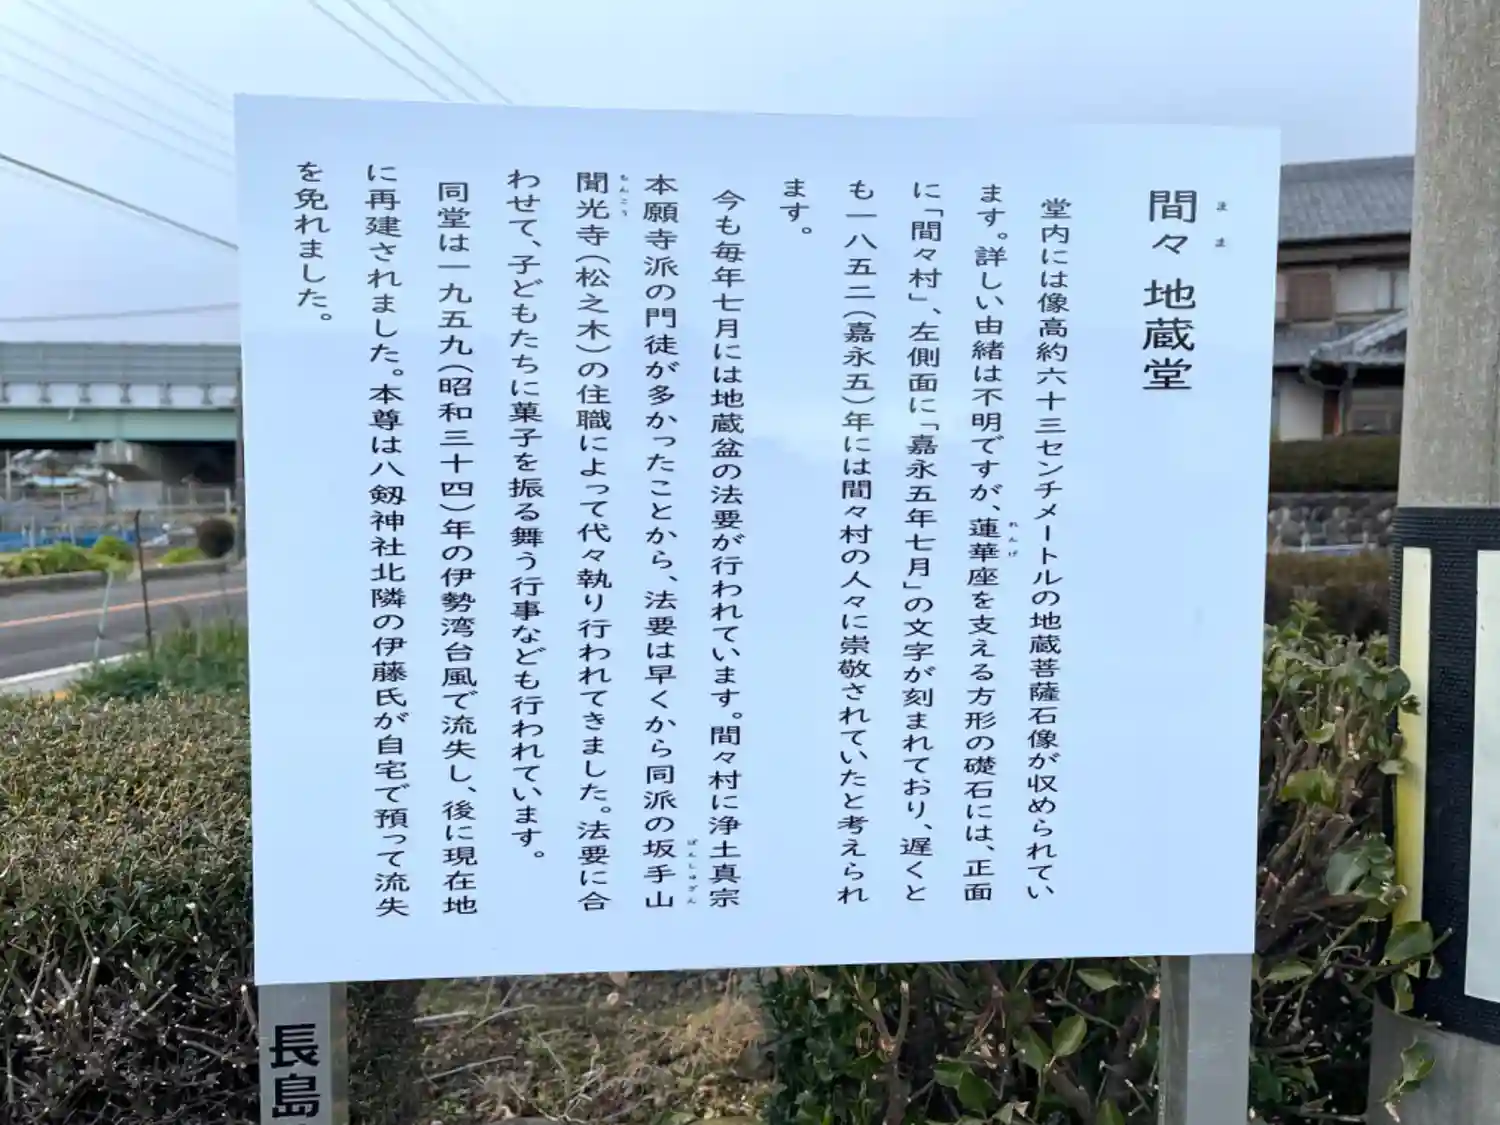 間々 地蔵堂
まま
堂内には像高約六十三センチメートルの地蔵菩薩石像が収められてい
ます。詳しい由緒は不明ですが、蓮華座を支える方形の礎石には、正面
れんげ
に「間々村」、左側面に「嘉永五年七月」の文字が刻まれており、遅くと
も一八五二(嘉永五)年には間々村の人々に崇敬されていたと考えられ
ます。
今も毎年七月には地蔵盆の法要が行われています。間々村に浄土真宗
本願寺派の門徒が多かったことから、法要は早くから同派の坂手山
ばんしゅざん
聞光寺(松之木)の住職によって代々執り行われてきました。法要に合
もんこう
わせて、子どもたちに菓子を振る舞う行事なども行われています。
同堂は一九五九(昭和三十四)年の伊勢湾台風で流失し、後に現在地
に再建されました。本尊は八剱神社北隣の伊藤氏が自宅で預って流失
を免れました。
長島